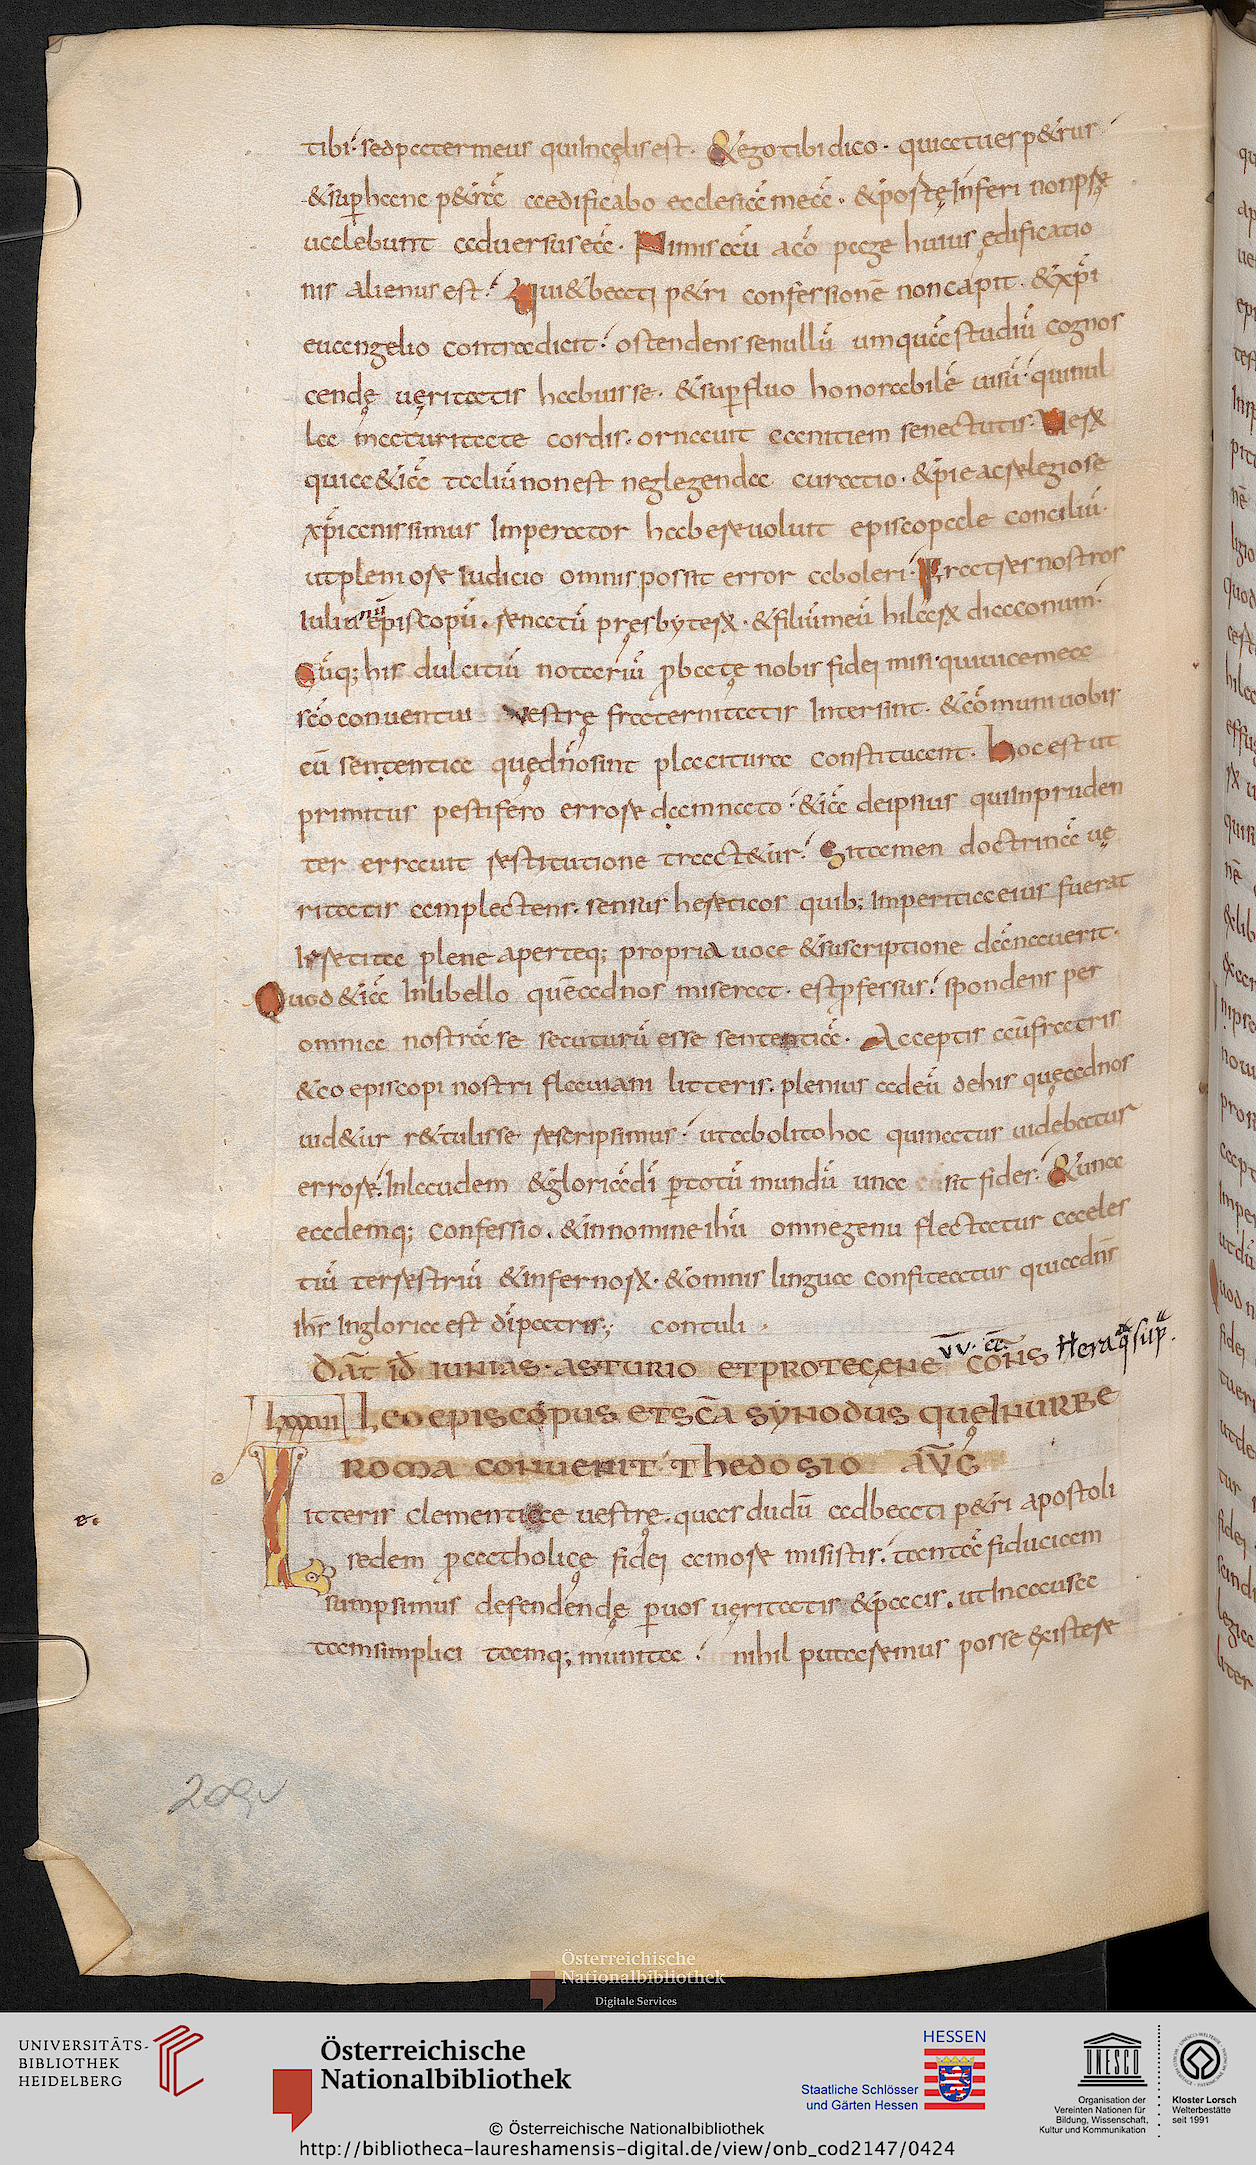 tibi. sed pater meus qui In cęlis est. & ego tibi dico. quia tu es p&rus
& sup hanc p&rā aedificabo ecclesiā meā. & portę Inferi non pre
ualebunt aduersus eā. Nimis aū a cō page huius ędificatio
nis alienus est. Qui & beati p&ri confessionē non capit. & xp̄i
euangelio contradicit. ostendens se nullū umquā studiū cognos
cendę uęritatis habuisse. & sup fluo honorabilē uisū. qui nul
la maturitate cordis. ornauit canitiem senectutis. Uerū
quia & iā taliū non est neglegenda curatio. & pie ac relegiose
xp̄ianissimus Imperator habere uoluit episcopale conciliū.
ut pleniore Iudicio omnis possit error aboleri. Fratres nostros
Iulianū episcopū. renatū pręsbyterū. & filiū meū hilarū diaconum.
Cūq; his dulcitiū notariū ꝓbatę nobis fidei misi. qui uice mea
scō conuentui Vestrę fraternitatis Intersint. & cōmuni uobis
cū sententia quę dn̄o sint placitura constituant. Hoc est ut
primitus pestifero errore damnato. & iā de ipsius qui Inpruden
ter errauit restitutione tract&ur. Si tamen doctrinā uę
ritatis amplectens. sensus hereticos quib; Imperitia eius fuerat
Inretita plene aperteq; propria uoce & suscriptione dānauerit.
Quod & iā In libello quē ad nos miserat. est ꝓfessus. spondens per
omnia nostrā se secuturū esse sententiā. Acceptis aū fratris
& coepiscopi nostri flauiani litteris. plenius ad eū de his quę ad nos
uid&ur r&tulisse rescripsimus. ut abolito hoc qui natus uidebatur
errore. In laudem & gloriā dī ꝑ totū mundū una sit fides. & una
eademq; confessio. & in nomine ih̄u omne genu flectatur caeles
tiū terrestriū & infernorū. & omnis lingua confiteatur quia dn̄s
ih̄s In gloria est dī patris; contuli.
Dat̄ id̄ Iunias. Asturio et Protegene v̄v̄. cc̄. cōns Hera q̄ sup̄.
Lxxxiii Leo episcopus et sc̄a synodus quę In urbe
Roma conuenit Thedosio AV̄G
Litteris clementiae uestrę. quas dudū ad beati p&ri apostoli
sedem ꝓ catholicę fidei amore misistis. tantā fiduciam
sumpsimus defendendę ꝑ uos uęritatis & pacis. ut In causa
tam simplici tamq; munita. nihil putaremus posse existere
209v
Österreichische
Nationalbibliothek
Digitale Services
UNIVERSITÄTS-
BIBLIOTHEK
HEIDELBERG
Österreichische
Nationalbibliothek
HESSEN
Staatliche Schlösser
und Gärten Hessen
UNESCO
Organisation der
Vereinten Nationen für
Bildung, Wissenschaft,
Kultur und Kommunikation
Kloster Lorsch
Welterbestätte
seit 1991
© Österreichische Nationalbibliothek
http://bibliotheca-laureshamensis-digital.de/view/onb_cod2147/0424